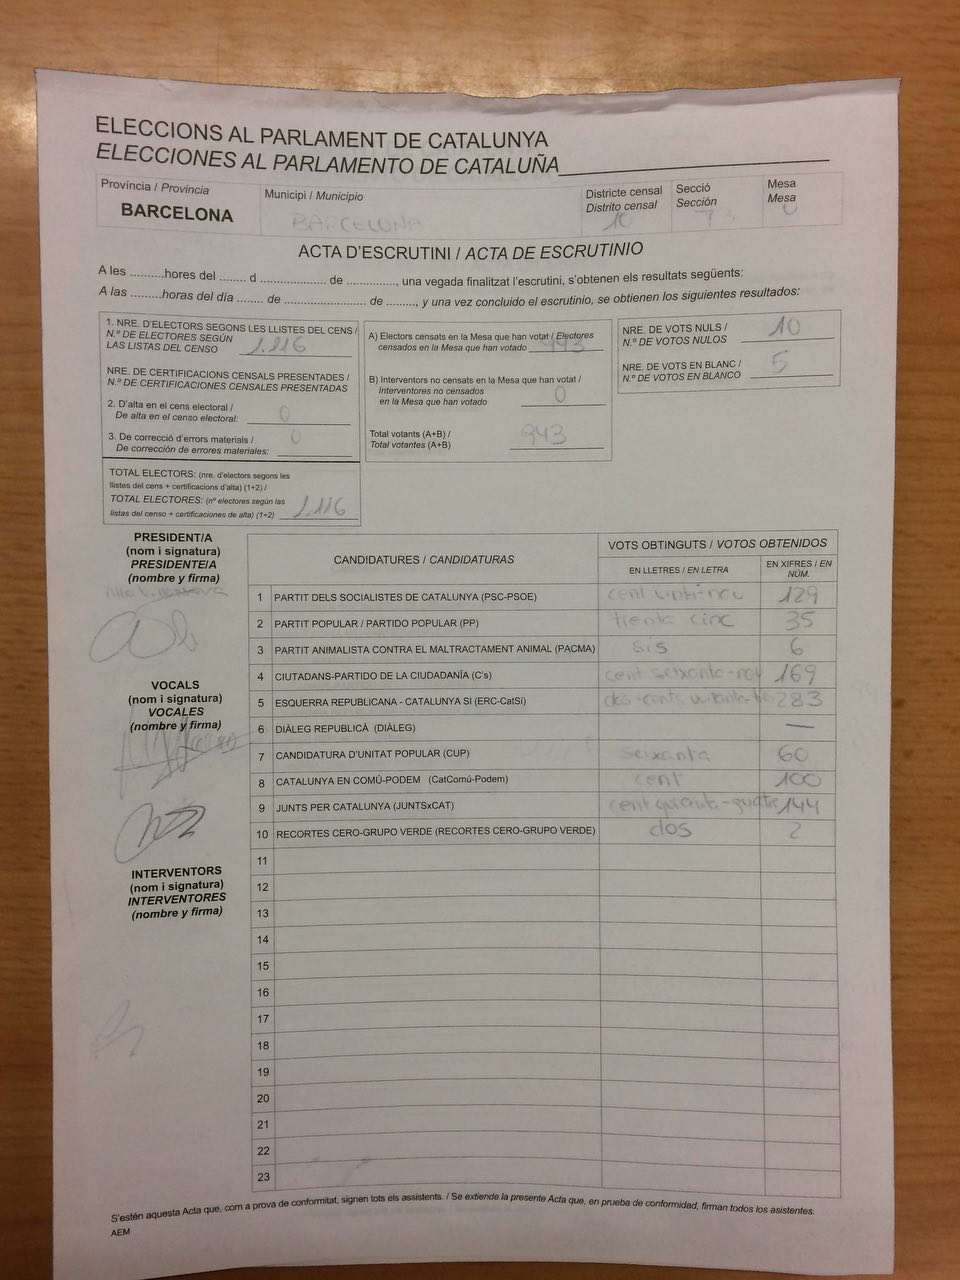 ELECCIONS AL PARLAMENT DE CATALUNYA
ELECCIONES AL PARLAMENTO DE CATALUÑA
Província / Provincia
BARCELONA
Municipi / Municipio
BARCELONA
Districte censal
Distrito censal
10
Secció
Sección
73
Mesa
Mesa
U
ACTA D'ESCRUTINI / ACTA DE ESCRUTINIO
A les ..........hores del ........ d .................... de ..............., una vegada finalitzat l'escrutini, s'obtenen els resultats següents:
A las .........horas del día ........ de ......................... de ........., y una vez concluido el escrutinio, se obtienen los siguientes resultados:
1. NRE. D'ELECTORS SEGONS LES LLISTES DEL CENS /
N.º DE ELECTORES SEGÚN
LAS LISTAS DEL CENSO 1.116
NRE. DE CERTIFICACIONS CENSALS PRESENTADES /
N.º DE CERTIFICACIONES CENSALES PRESENTADAS
2. D'alta en el cens electoral /
De alta en el censo electoral: 0
3. De correcció d'errors materials /
De corrección de errores materiales: 0
TOTAL ELECTORS: (nre. d'electors segons les
llistes del cens + certificacions d'alta) (1+2) /
TOTAL ELECTORES: (nº electores según las
listas del censo + certificaciones de alta) (1+2) 1.116
A) Electors censats en la Mesa que han votat / Electores
censados en la Mesa que han votado 943
B) Interventors no censats en la Mesa que han votat /
Interventores no censados
en la Mesa que han votado 0
Total votants (A+B) /
Total votantes (A+B) 943
NRE. DE VOTS NULS /
N.º DE VOTOS NULOS 10
NRE. DE VOTS EN BLANC /
N.º DE VOTOS EN BLANCO 5
PRESIDENT/A
(nom i signatura)
PRESIDENTE/A
(nombre y firma)
VOCALS
(nom i signatura)
VOCALES
(nombre y firma)
INTERVENTORS
(nom i signatura)
INTERVENTORES
(nombre y firma)
CANDIDATURES / CANDIDATURAS
VOTS OBTINGUTS / VOTOS OBTENIDOS
EN LLETRES / EN LETRA
EN XIFRES / EN
NÚM.
1 PARTIT DELS SOCIALISTES DE CATALUNYA (PSC-PSOE) cent vinti-nou 129
2 PARTIT POPULAR / PARTIDO POPULAR (PP) trenta cinc 35
3 PARTIT ANIMALISTA CONTRA EL MALTRACTAMENT ANIMAL (PACMA) sis 6
4 CIUTADANS-PARTIDO DE LA CIUDADANÍA (C's) cent seixanta-nou 169
5 ESQUERRA REPUBLICANA - CATALUNYA SI (ERC-CatSí) dos-cents 283
6 DIÀLEG REPUBLICÀ (DIÀLEG) —
7 CANDIDATURA D'UNITAT POPULAR (CUP) seixanta 60
8 CATALUNYA EN COMÚ-PODEM (CatComú-Podem) cent 100
9 JUNTS PER CATALUNYA (JUNTSxCAT) cent 144
10 RECORTES CERO-GRUPO VERDE (RECORTES CERO-GRUPO VERDE) dos 2
11
12
13
14
15
16
17
18
19
20
21
22
23
S'estén aquesta Acta que, com a prova de conformitat, signen tots els assistents. / Se extiende la presente Acta que, en prueba de conformidad, firman todos los asistentes.
AEM